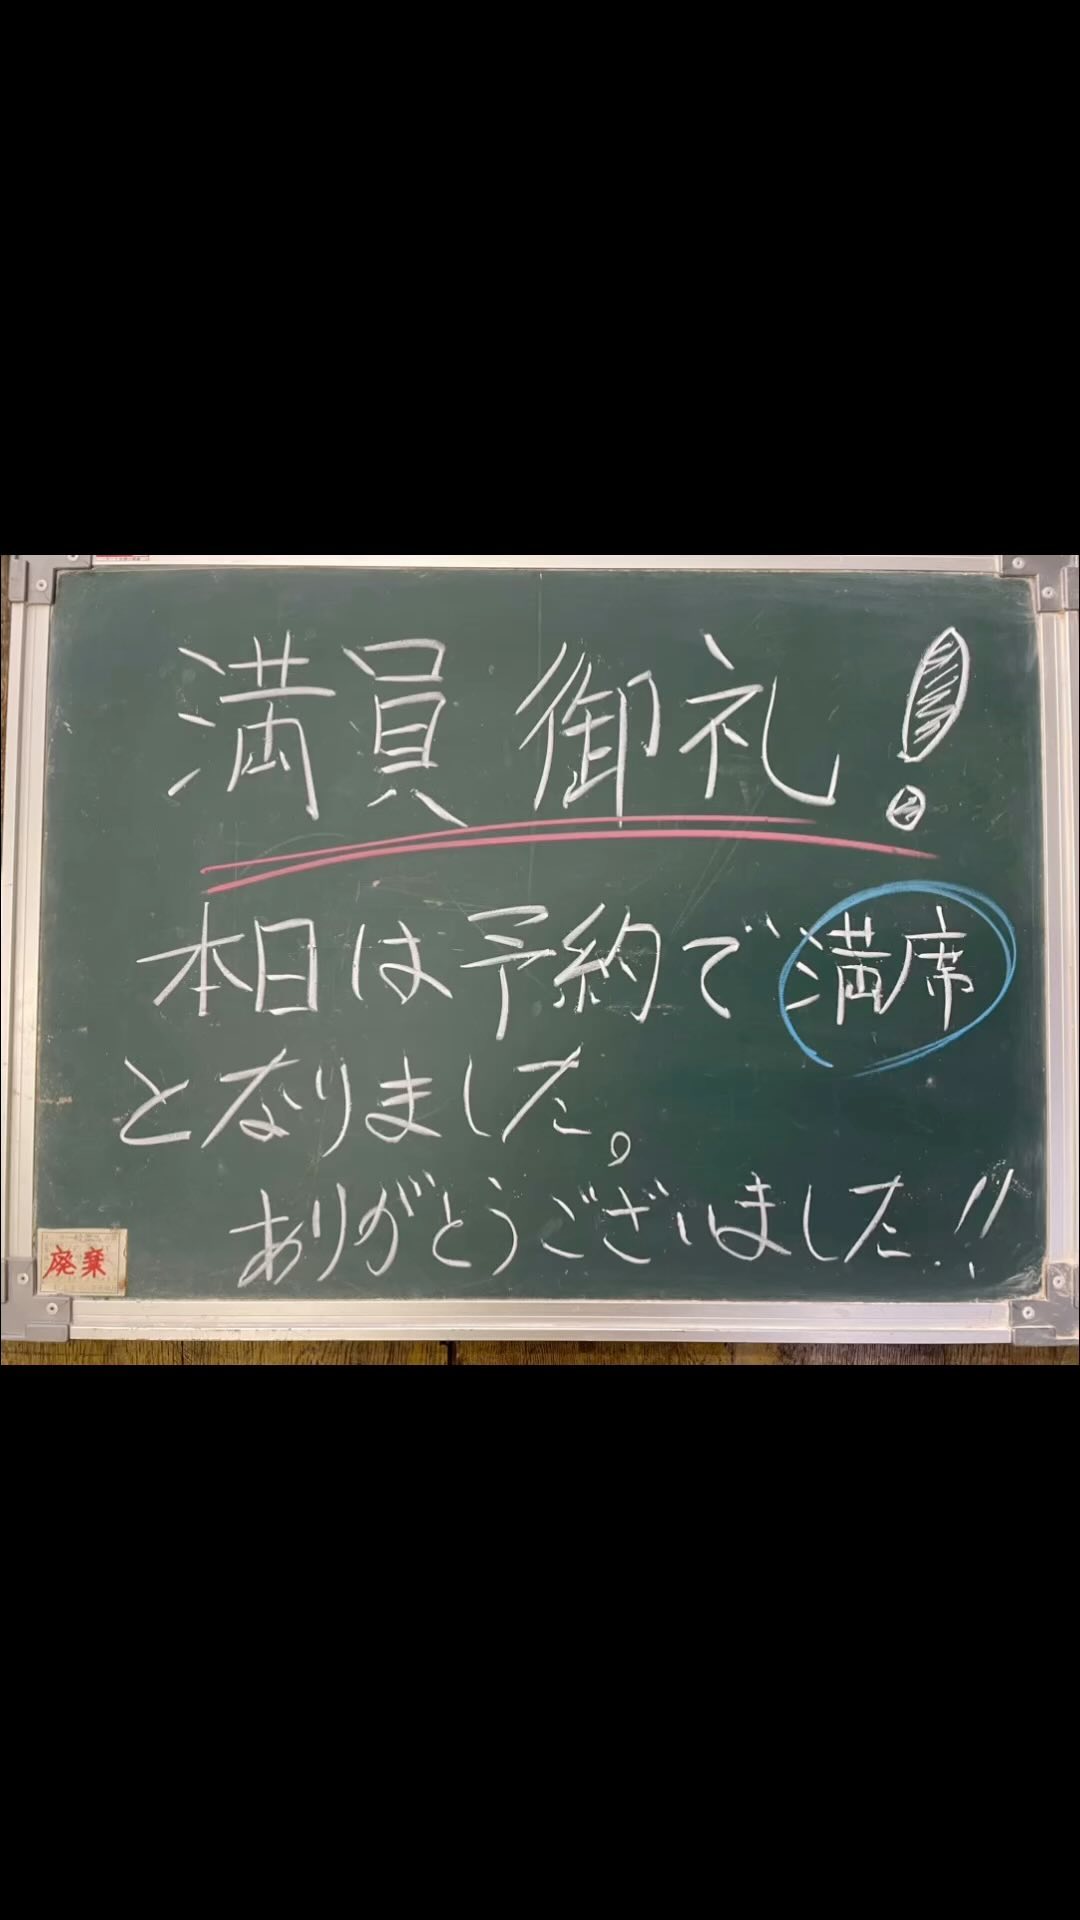 満員御礼!
本日は予約で満席
となりました。
ありがとうございました!!
廃棄